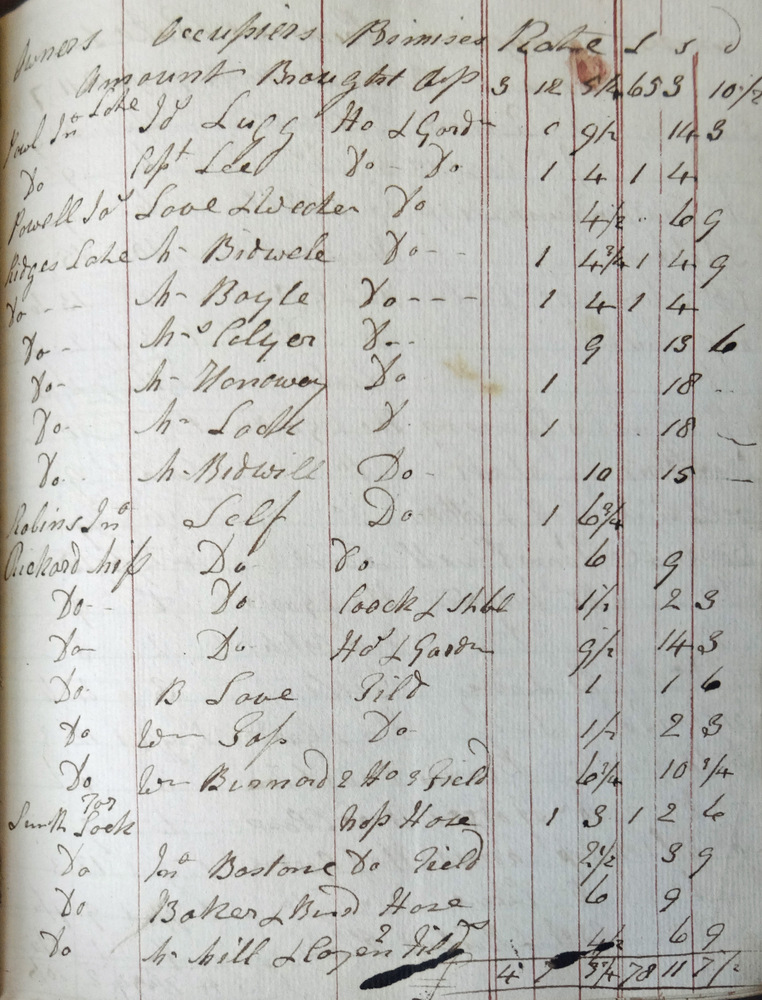 Owners Occupiers Primises Rate £ s d
Amount Brought Up 3 12 5¼ 65 3 10½
Powl Jnº Late Joˢ Lugg Ho & Gardn 9½ 14 3
Do Capt Lee Do - Do 1 4 1 4
Powell Joˢ Love & Weeken Do 4½ 6 9
Ridges Late Mr Bidwele Do - - 1 4¾ 1 4 9
Do - - Mr Bayle Do - - - 1 4 1 4
Do - Mrs Colyer D - - 9 13 6
Do - Mr Honowey Do 1 18 -
Do - Mr Lock D 1 18 -
Do - Mr Bidwill Do - 10 15 -
Robins Jnº Self Do 1 6¾
Rickard Miss Do - Do 6 9
Do - - Do Coock & Stbl 1½ 2 3
Do - Do - Hoˢ & Gardn 9½ 14 3
Do - B Love Fild 1 1 6
Do Wm Goss Do - 1½ 2 3
Do Wm Burnard 2 Ho 2 Field 6¾ 10 ¾
Smith for Lock Hose 1 3 1 2 6
Do Jnº Bastone Do Field 2½ 3 9
Do Baker & Bird Hose 6 9
Do Mr Mill & 2 Fild 4½ 6 9
4 7 3¼ 78 11 7½